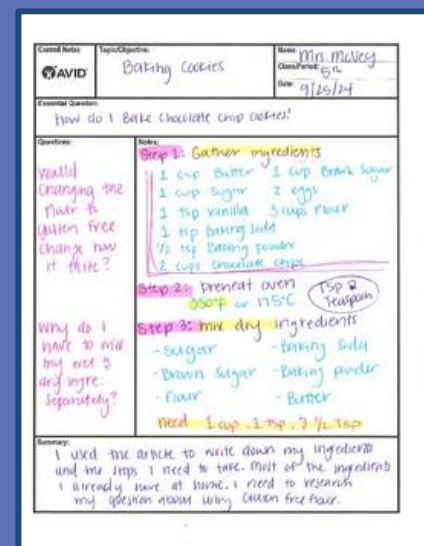 Cornell Notes
AVID
Topic/Objective:
Baking Cookies
Name: Mrs. McVey
Class/Period: 5th
Date: 9/25/24
Essential Question:
How do I Bake chocolate chip cookies?
Questions:
Would
changing the
flour to
gluten free
change how
it
Why do I
have to mix
my wet &
dry ingre.
separately?
Notes:
Step 1: Gather ingredients
1 cup Butter 1 cup Brown Sugar
1 cup sugar 2 eggs
1 tsp vanilla 3 cups flour
1 tsp Baking Soda
1/2 tsp Baking powder
2 cups chocolate chips
Step 2: preheat oven
350°F or 175°C
Tsp =
Teaspoon
Step 3: mix dry ingredients
- Sugar - Baking Soda
- Brown Sugar - Baking powder
- Flour - Butter
need 1 cup, 1 tsp, 3 1/2 Tsp
Summary:
I used the article to write down my ingredients
and the steps I need to take. Most of the ingredients
I already have at home. I need to research
my question about why Gluten free flour.